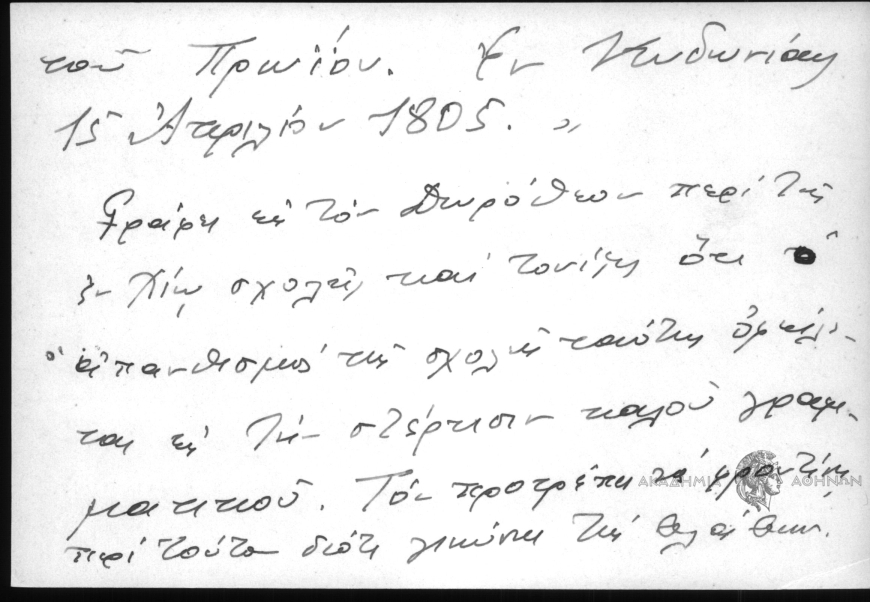 τοῦ Πρωΐου. Ἐν Κυδωνίαις
15 Ἀπριλίου 1805. »
Γράφει εἰς τὸν Δωρόθεον περὶ τῆς
ἐν Χίῳ σχολῆς καὶ τονίζει ὅτι ὁ
ἀπανθισμὸς τῆς σχολῆς ταύτης ὀφείλε-
ται εἰς τὴν στέρησιν καλοῦ γραμ-
ματικοῦ. Τὸν προτρέπει νὰ φροντίσῃ
περὶ τούτου διότι
ΑΚΑΔΗΜΙΑ ΑΘΗΝΩΝ